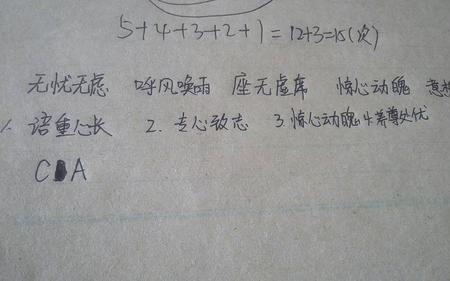 5+4+3+2+1=12+3=15(次)
无忧无虑 呼风唤雨 座无虚席 惊心动魄 意想
1. 语重心长 2. 专心致志 3. 惊心动魄 4. 养尊处优
C A